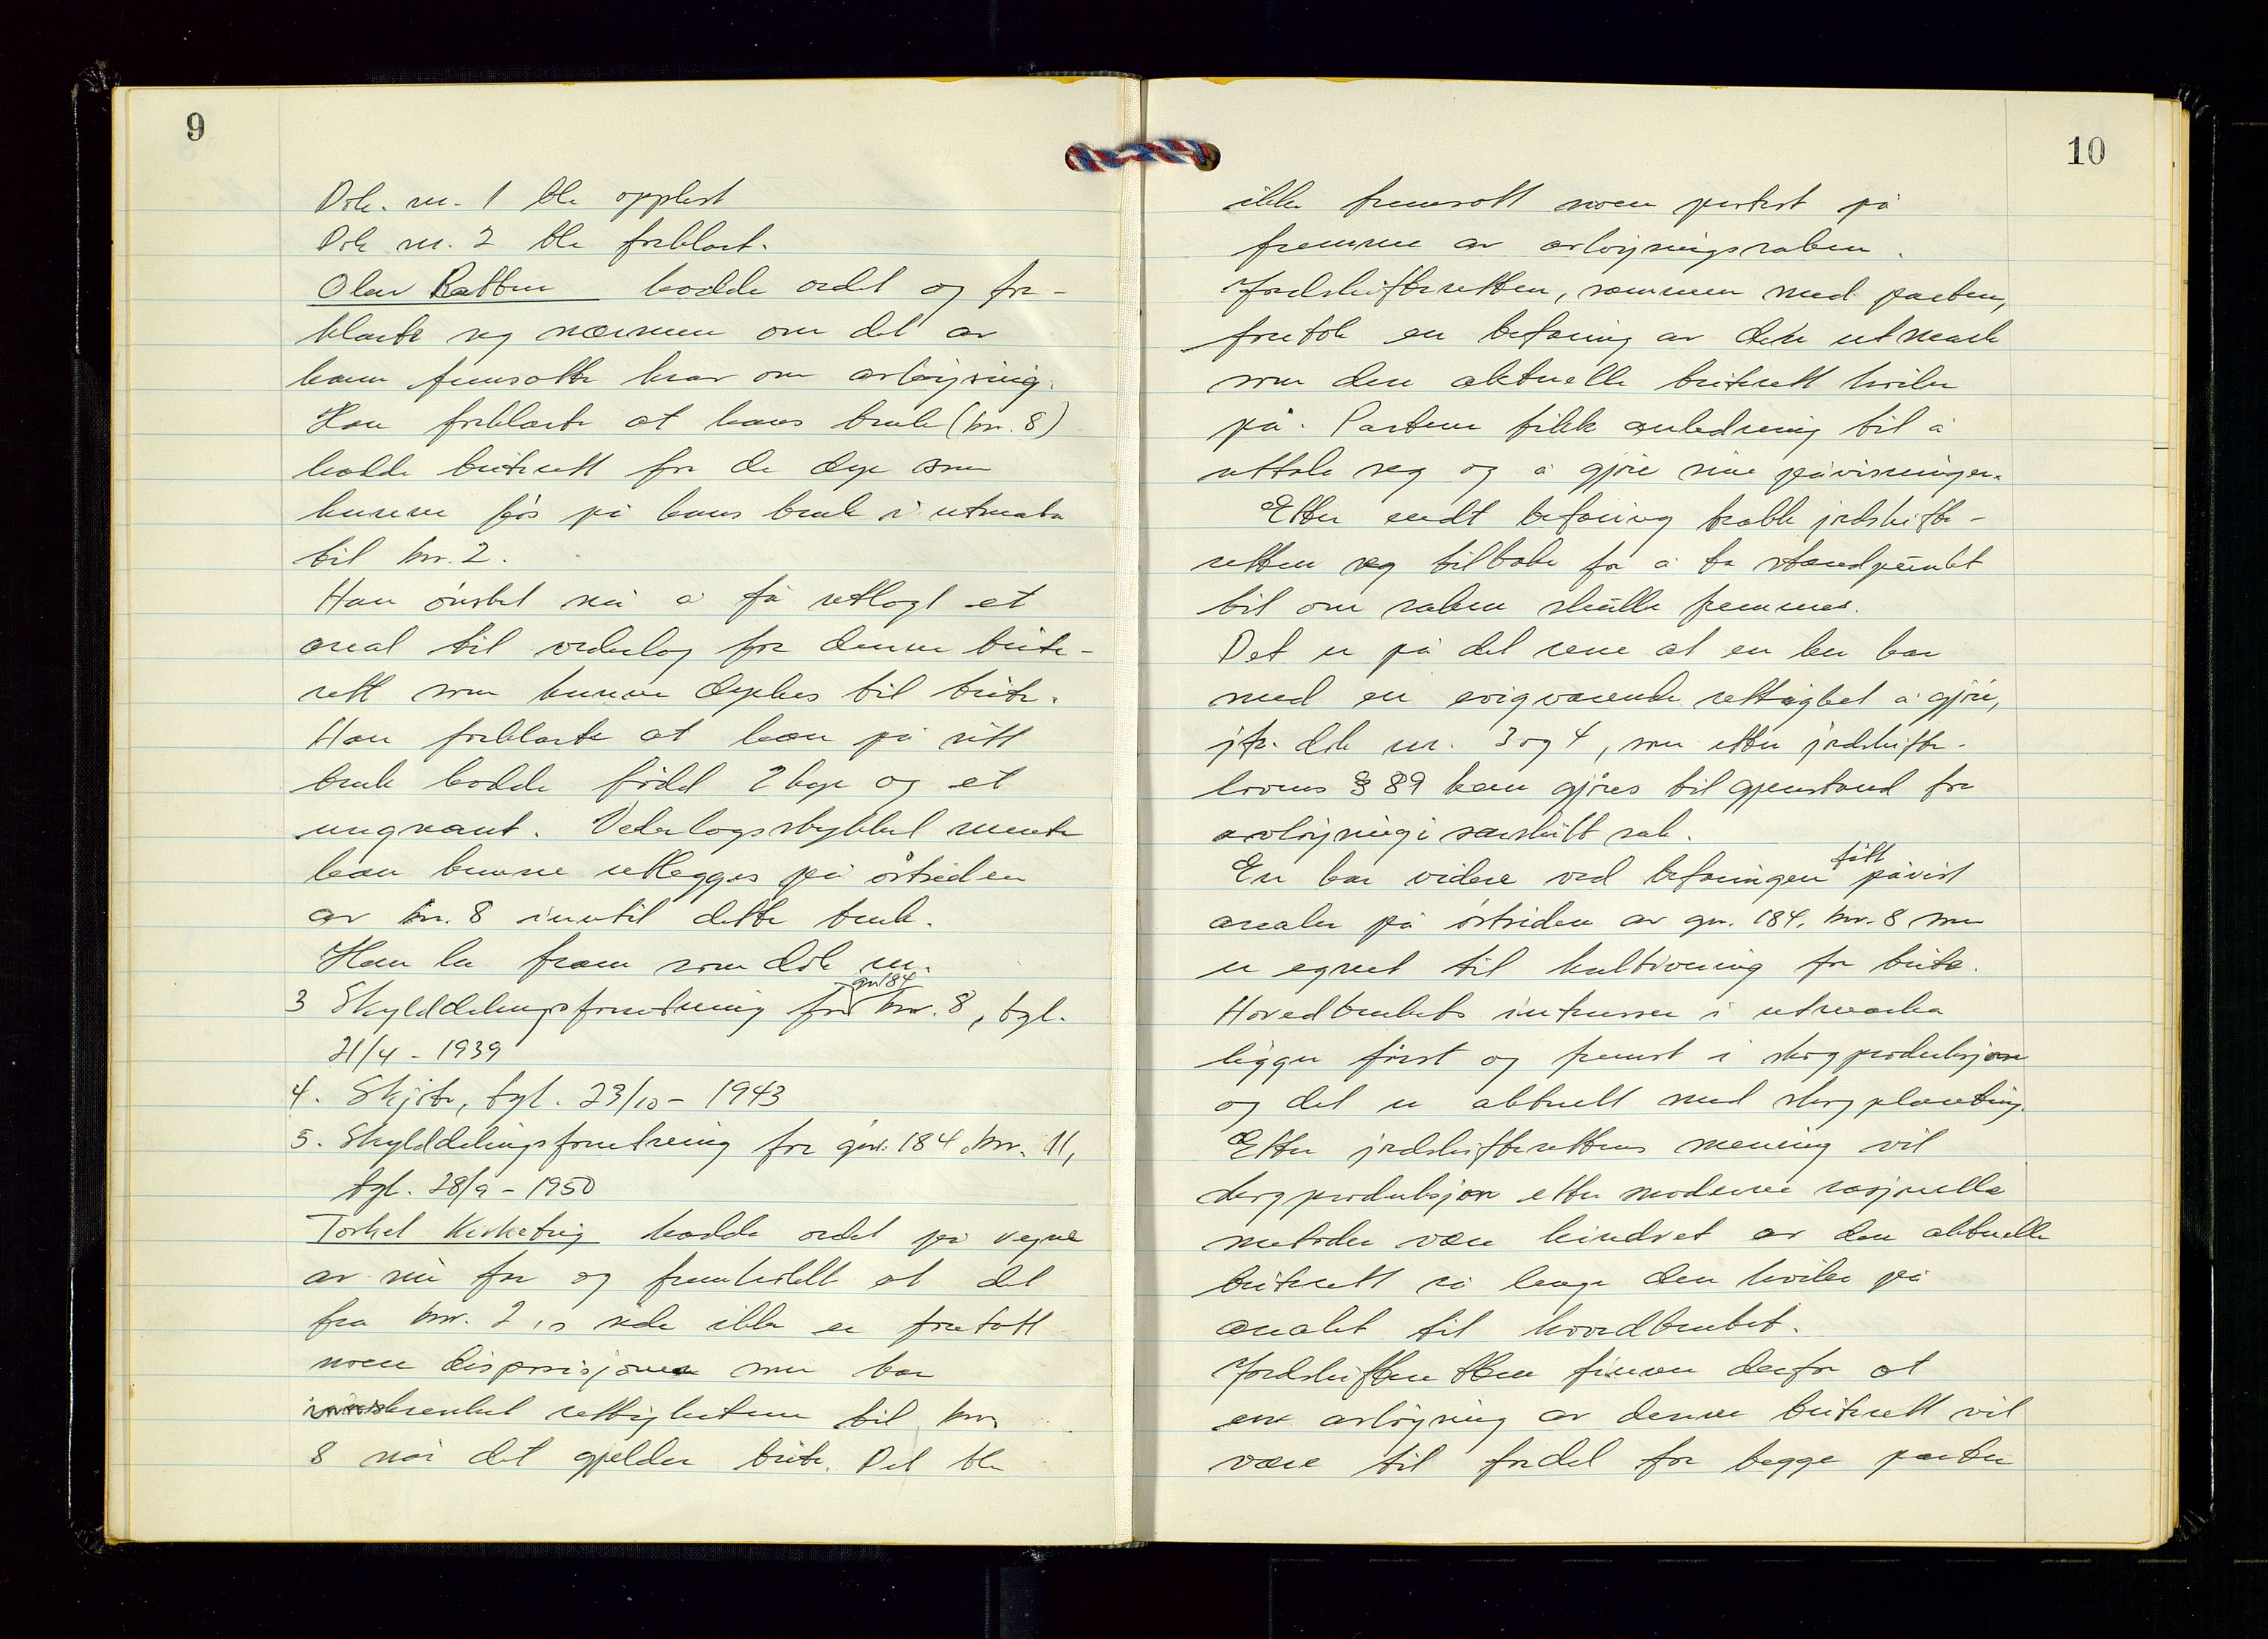 9
Dok. nr. 1 ble opplest
Dok nr. 2 ble forklart.
Olav hadde ordet og for-
klarte seg nærmere om det av
ham fremsatte krav om avløysing.
Han forklarte at hans bruk (bnr. 8)
hadde beiterett for de dyr som
kunne føs på hans bruk i utmarka
til bnr. 2.
Han ønsket nå å få utlagt et
areal til vederlag for denne beite-
rett som kunne dyrkes til beite.
Han forklarte at han på sitt
bruk hadde fødd 2 kyr og et
ungnaut. Vederlagsstykket mente
han kunne utlegges på østsiden
av bnr. 8 inntil dette bruk.
Han la fram som dok nr.
gnr 184
3 Skylddelingsforretning for bnr. 8, tgl.
21/4 - 1939
4. Skjøte, tgl. 23/10 - 1943
5. Skylddelingsforretning for gnr. 184, bnr. 11,
tgl. 28/9 - 1950
Torkel hadde ordet på vegne
av sin far og fremholdt at det
fra bnr. 2's side ikke er foretatt
noen disposisjoner som har
innskrenket rettighetene til bnr.
8 når det gjelder beite. Det ble
10
ikke fremsatt noen protest på
fremme av avløysningssaken.
Jordskifteretten, sammen med partene,
foretok en befaring av den utmark
som den aktuelle beiterett hviler
på. Partene fikk anledning til å
uttale seg og å gjøre sine påvisninger.
Etter endt befaring trakk jordskifte-
retten seg tilbake for å ta standpunkt
til om saken skulle fremmes.
Det er på det rene at en her har
med en evigvarende rettighet å gjøre,
jfr. dok nr. 3 og 4, som etter jordskifte-
lovens § 89 kan gjøres til gjenstand for
avløysning i særskilt sak.
fått
En har videre ved befaringen påvist
arealer på østsiden av gnr. 184, bnr. 8 som
er egnet til kultivering for beite.
Hovedbrukets interesser i utmarka
ligger først og fremst i skogproduksjon
og det er aktuelt med skogplanting.
Etter jordskifterettens mening vil
skogproduksjon etter moderne rasjonelle
metoder være hindret av den aktuelle
beiterett så lenge den hviler på
arealet til hovedbruket.
Jordskifteretten finner derfor at
en avløysning av denne beiterett vil
være til fordel for begge parter